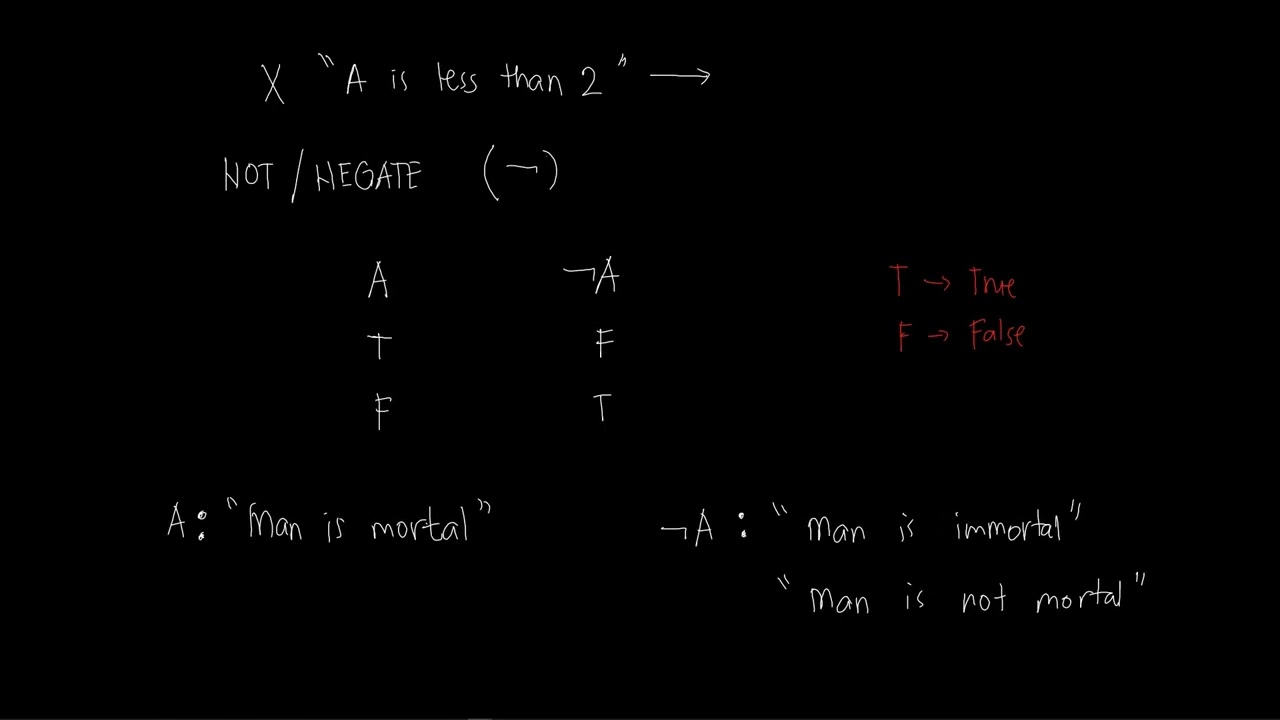 X "A is less than 2" →
NOT / NEGATE (¬)
A ¬A
T F
F T
T → True
F → False
A: "Man is mortal"
¬A: "Man is immortal"
"Man is not mortal"